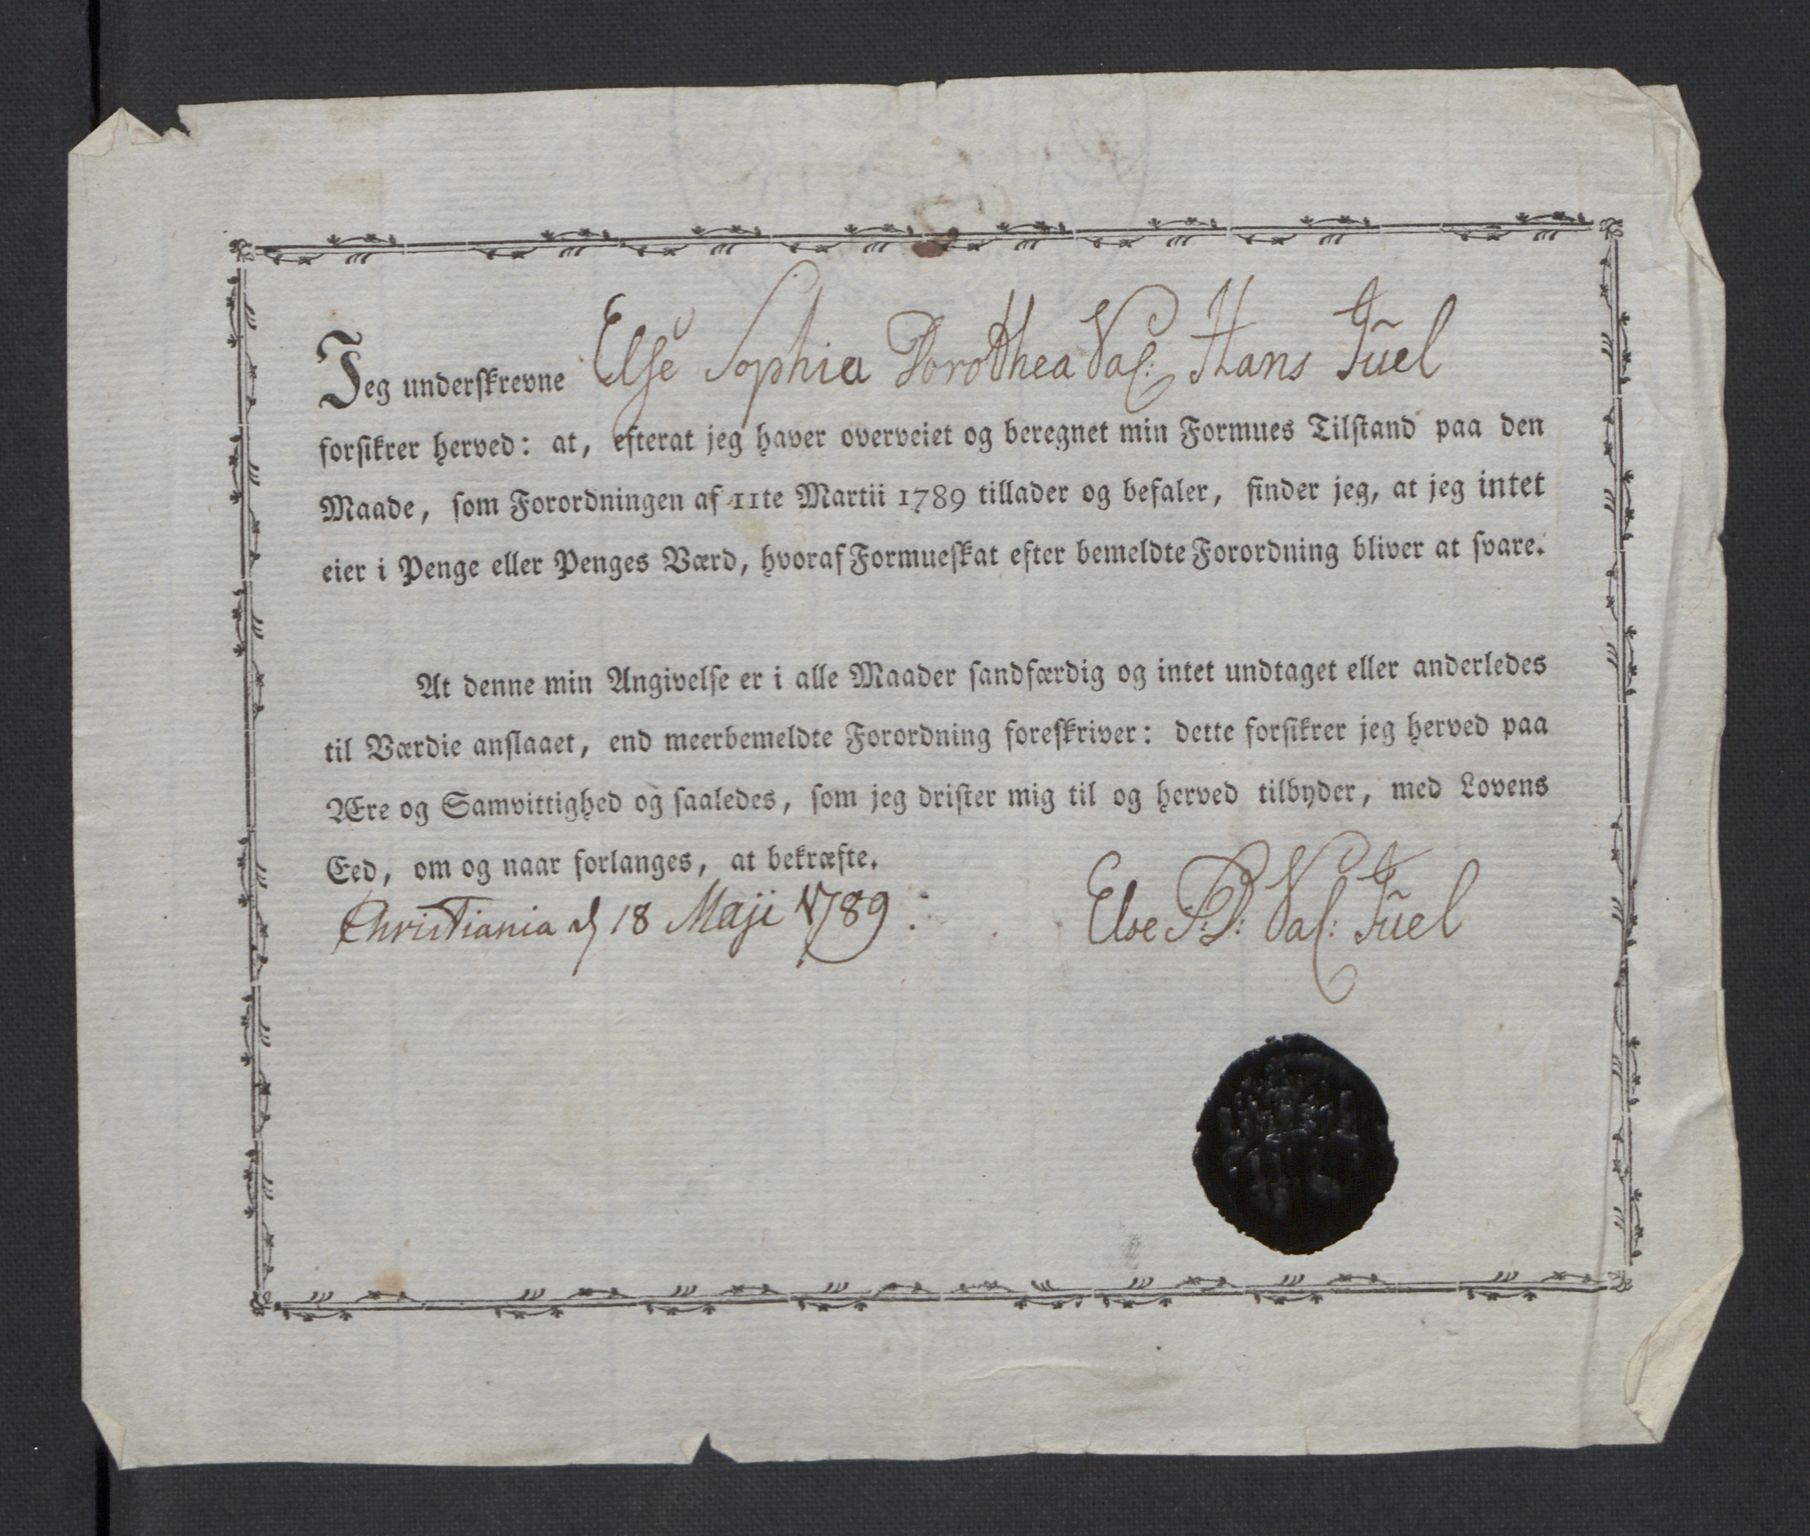 Jeg underskrevne Else Sophia Dorotthea Sal: Hans Juel
forsikrer herved: at, efterat jeg haver overveiet og beregnet min Formues Tilstand paa den
Maade, som Forordningen af 11te Martii 1789 tillader og befaler, finder jeg, at jeg intet
eier i Penge eller Penges Værd, hvoraf Formueskat efter bemeldte Forordning bliver at svare.
At denne min Angivelse er i alle Maader sandfærdig og intet undtaget eller anderledes
til Værdie anslaaet, end meerbemeldte Forordning foreskriver: dette forsikrer jeg herved paa
Ære og Samvittighed og saaledes, som jeg drister mig til og herved tilbyder, med Lovens
Eed, om og naar forlanges, at bekræfte.
Christiania d 18 Maji 1789.
Else S: D: Sal: Juel